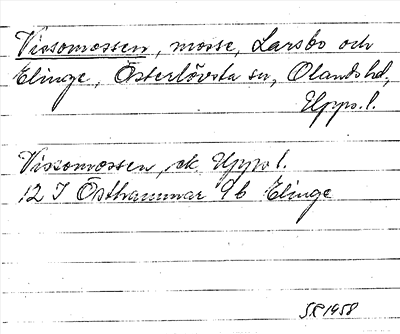 Vissomossen, mosse, Larsbo och
Elinge, Österlövsta sn, Olands hd,
Upps. l.
Vissomossen, ek. Upps l.
12 I Östhammar 9b Elinge
S.R 1958